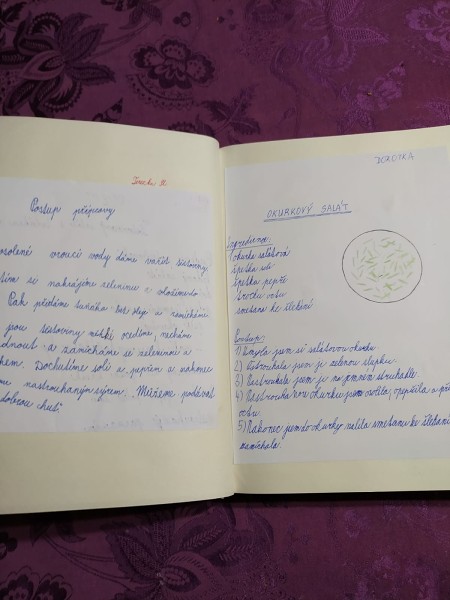 Terezka H.
Postup přípravy
osolené vroucí vody dáme vařit těstoviny
tím se nakrájíme zeleninu a
Pak přidáme tuňáka bez oleje a zamícháme
jsou těstoviny měkké ocedíme, necháme
dnout a zamícháme se zeleninou a
kem. Dochutíme solí a pepřem a nakonec
me nastrouhaným sýrem. Můžeme podávat
dobrou chuť.
DOROTKA
OKURKOVÝ SALÁT
Ingredience:
1 okurka salátová
špetka soli
špetka pepře
trochu octu
smetana ke šlehání
Postup:
1) Umyla jsem si salátovou okurku
2) Ostrouhala jsem jí zelenou slupku.
3) Nastrouhala jsem jí na jemném struhadle.
4) Nastrouhanou okurku jsem osolila, opepřila a
octu.
5) Nakonec jsem do okurky nalila smetanu ke šlehání
zamíchala.